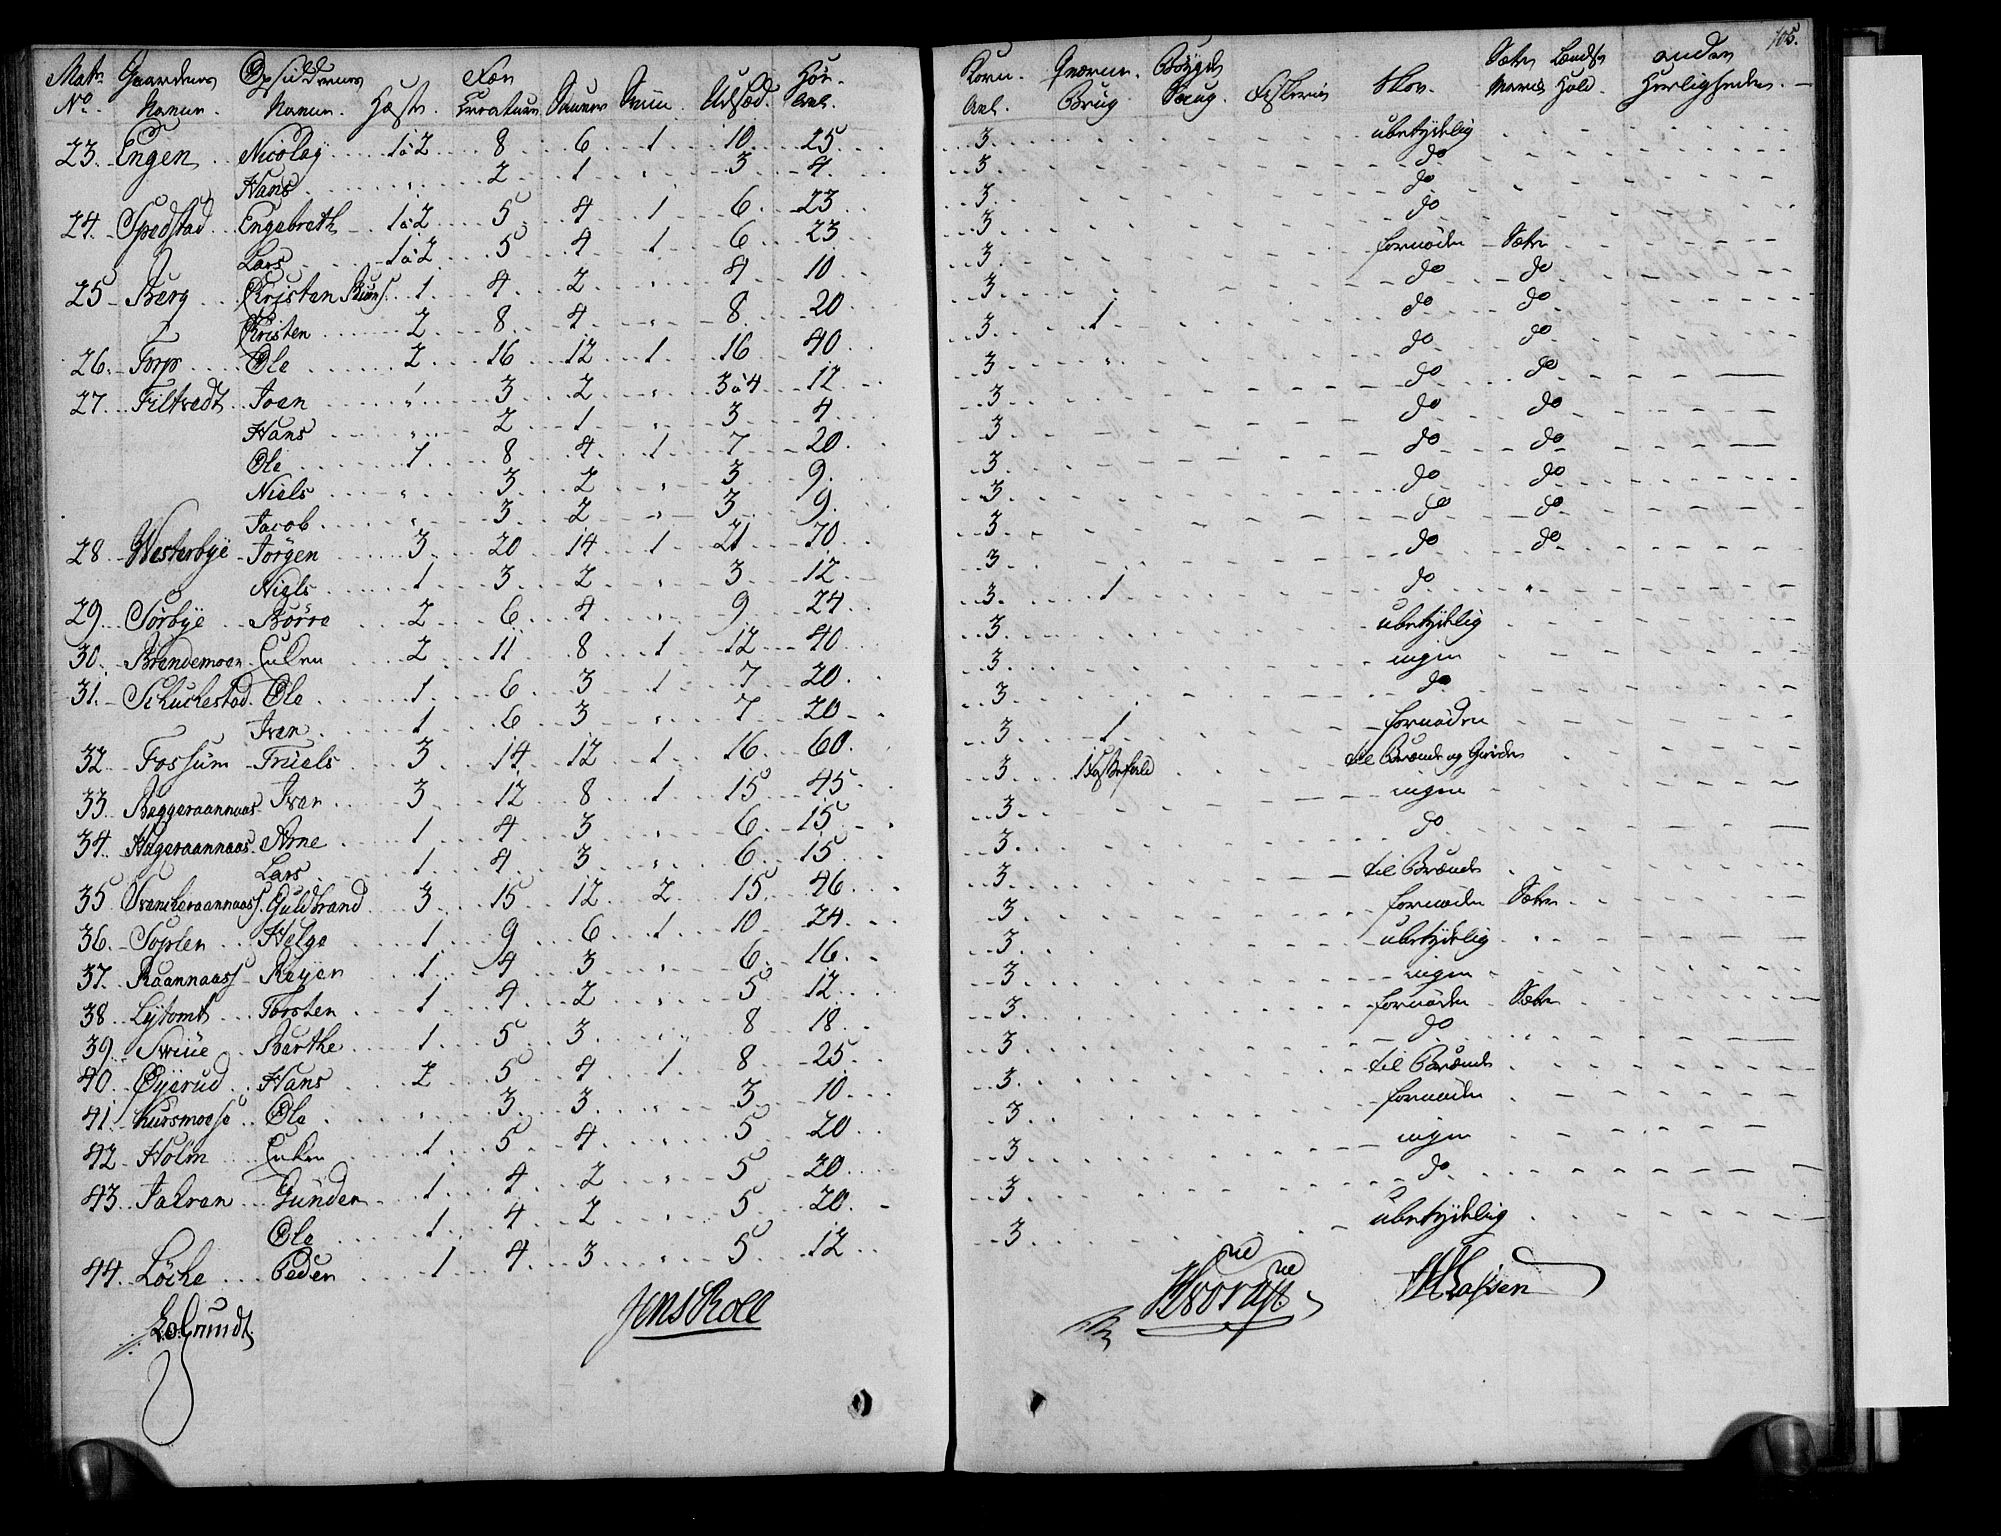 105.
Matr. No. Gaardenes Navne. Opsiddernes Navne. Hæste. Fæe Creature. Sauer. Sviin. Udsæd. Høe Avl. Korn Avl. Qværne Brug. Bøigde Saug. Fiskerie Skov. Sæter Havneg. Andre Herligheder.
23. Engen Nicolay 1 à 2 8 6 1 10 25 3 ubetydelig
Hans " 2 1 " 3 4 3 do
24. Spedstad Engebreth 1 à 2 5 4 1 6 23 3 do
Lars 1 à 2 5 4 1 6 23 3 do
25 Berg Christen 1 4 2 " 4 10 3 fornøden Sæter
Christen 2 8 4 " 8 20 3 do do
26. Torp Ole 2 16 12 1 16 40 3 1 do do
27. Filtvedt Joen " 3 2 " 3 à 4 12 3 " do do
Hans " 2 1 " 3 4 3 do do
Ole 1 8 4 1 7 20 3 do do
Niels " 3 2 " 3 9 3 do do
Jacob " 3 2 " 3 9 3 do do
28 Westerbye Jörgen 3 20 14 1 21 70 3 do do
Niels 1 3 2 " 3 12 3 do do
29. Sörbye Börre 2 6 4 " 9 24 3 1 do "
30. Brandemoen Enken 2 11 8 1 12 40 3 ubetydelig
31. Schuchestad Ole 1 6 3 1 7 20 3 ingen
Iver 1 6 3 " 7 20 3 do
32 Fossum Truels 3 14 12 1 16 60 3 1 fornøden
33 Baggeraannaas Iver 3 12 8 1 15 45 3 1 til Brænde og Gierder
34. Hageraannaas Arne 1 4 3 " 6 15 3 ingen
Lars 1 4 3 " 6 15 3 do
35 Svencheraannaas Guldbrand 3 15 12 2 15 46 3 til Brænde
36. Soplen Helge 1 9 6 1 10 24 3 fornøden Sæter
37. Raannaass Reyer 1 4 3 6 16 3 ubetydelig
38 Lystomt Torsten 1 4 2 " 5 12 3 ingen
39. Swiue Barthe 1 5 3 " 8 18 3 fornøden Sæter
40. Øyerud Hans 2 5 4 1 8 25 3 do
41. Kursmose Ole " 3 3 " 3 10 3 til Brænde
42 Holm Enken 1 5 4 " 5 20 3 fornøden
43. Jalven Gunder 1 4 2 " 5 20 3 ingen
Ole 1 4 2 " 5 20 3 do
44. Löche Peder 1 4 3 " 5 12 3 ubetydelig
Lo Grundt. Jens Roll